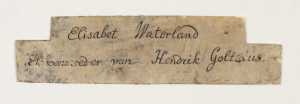 Elisabet Waterland
van Hendrik Goltzius.